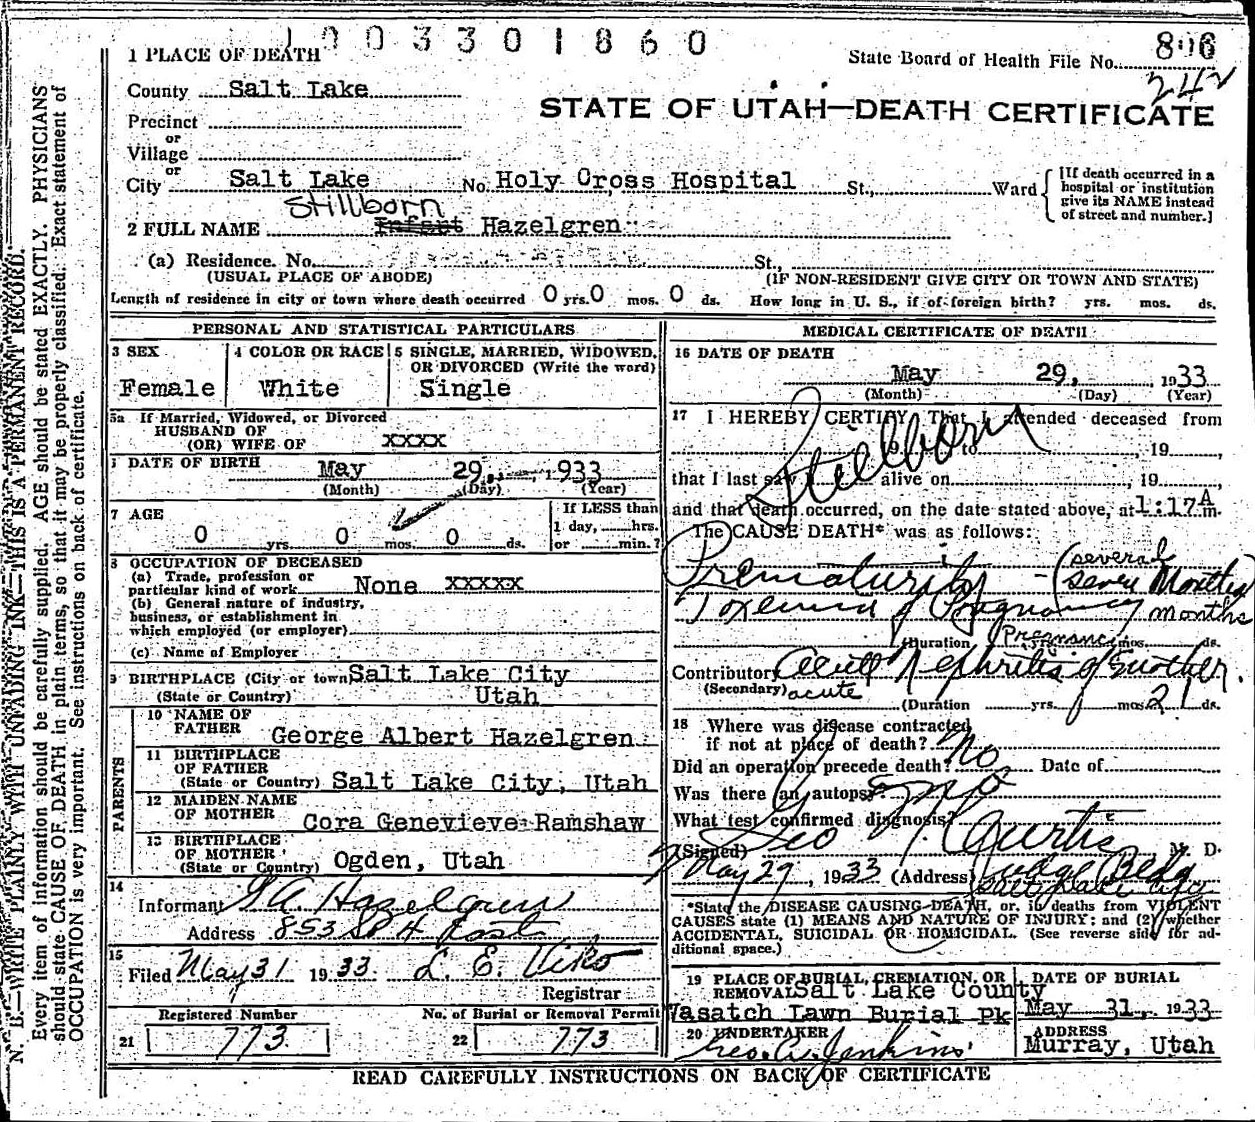 1003301860
1 PLACE OF DEATH
State Board of Health File No. 806
242
County Salt Lake
STATE OF UTAH—DEATH CERTIFICATE
Precinct
or
Village
or
City Salt Lake No. Holy Cross Hospital St., Ward
[If death occurred in a
hospital or institution
give its NAME instead
of street and number.]
Stillborn
2 FULL NAME Infant Hazelgren
(a) Residence. No. St.,
(USUAL PLACE OF ABODE) (IF NON-RESIDENT GIVE CITY OR TOWN AND STATE)
Length of residence in city or town where death occurred 0 yrs. 0 mos. 0 ds. How long in U. S., if of foreign birth? yrs. mos. ds.
PERSONAL AND STATISTICAL PARTICULARS
3 SEX
Female
4 COLOR OR RACE
White
5 SINGLE, MARRIED, WIDOWED,
OR DIVORCED (Write the word)
Single
5a If Married, Widowed, or Divorced
HUSBAND OF
(OR) WIFE OF xxxx
DATE OF BIRTH May 29, 1933
(Month) (Day) (Year)
7 AGE
0 yrs. 0 mos. 0 ds.
If LESS than
1 day, hrs.
or min.?
8 OCCUPATION OF DECEASED
(a) Trade, profession or
particular kind of work None xxxxx
(b) General nature of industry,
business, or establishment in
which employed (or employer)
(c) Name of Employer
9 BIRTHPLACE (City or town) Salt Lake City
(State or Country) Utah
PARENTS
10 NAME OF
FATHER George Albert Hazelgren
11 BIRTHPLACE
OF FATHER
(State or Country) Salt Lake City, Utah
12 MAIDEN NAME
OF MOTHER Cora Genevieve Ramshaw
13 BIRTHPLACE
OF MOTHER
(State or Country) Ogden, Utah
14
Informant G. A. Hazelgren
Address 853 So 4 East
15
Filed May 31 1933 L. E. Viko
Registrar
Registered Number
21 773
No. of Burial or Removal Permit
22 773
MEDICAL CERTIFICATE OF DEATH
16 DATE OF DEATH
May 29, 1933
(Month) (Day) (Year)
17 I HEREBY CERTIFY, That I attended deceased from
19 to , 19 ,
Stillborn
that I last saw alive on , 19 ,
and that death occurred, on the date stated above, at 1:17 A m.
The CAUSE DEATH* was as follows:
Prematurity - (several
seven Months
Toxemia of Pregnancy months
Pregnancy
(Duration yrs. mos. ds.
Contributory Acute Nephritis of mother.
(Secondary) acute
(Duration yrs. mos. 21 ds.
18 Where was disease contracted
if not at place of death?
Did an operation precede death? No Date of
Was there an autopsy? no
What test confirmed diagnosis?
(Signed) Geo N. Curtis M. D.
May 29, 1933 (Address) Judge Bldg
Salt Lake City
*State the DISEASE CAUSING DEATH, or, in deaths from VIOLENT
CAUSES state (1) MEANS AND NATURE OF INJURY; and (2) whether
ACCIDENTAL, SUICIDAL OR HOMICIDAL. (See reverse side for ad-
ditional space.)
19 PLACE OF BURIAL, CREMATION, OR
REMOVAL Salt Lake County
Wasatch Lawn Burial Pk
DATE OF BURIAL
May 31, 1933
20 UNDERTAKER
Geo. A. Jenkins
ADDRESS
Murray, Utah
READ CAREFULLY INSTRUCTIONS ON BACK OF CERTIFICATE
N. B.—WRITE PLAINLY WITH UNFADING INK—THIS IS A PERMANENT RECORD.
Every item of information should be carefully supplied. AGE should be stated EXACTLY. PHYSICIANS
should state CAUSE OF DEATH in plain terms, so that it may be properly classified. Exact statement of
OCCUPATION is very important. See instructions on back of certificate.